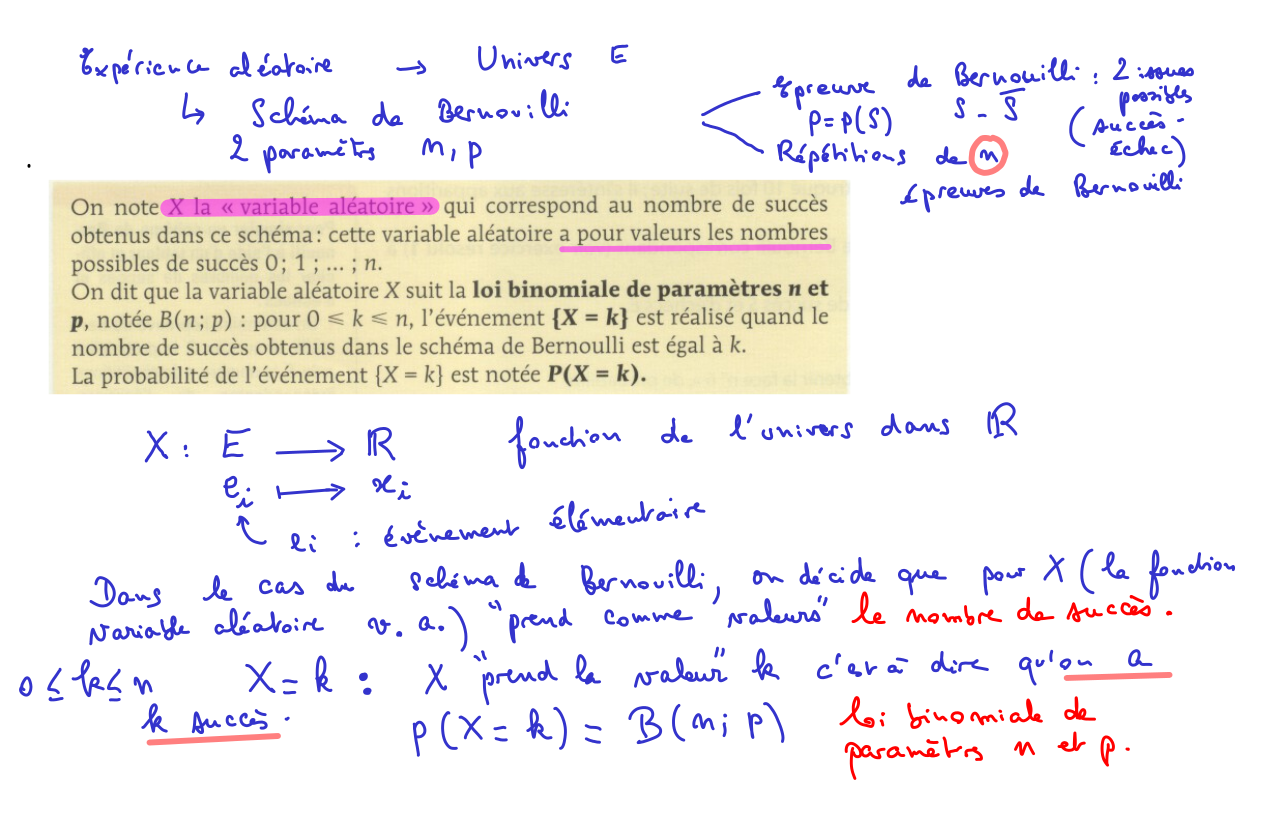 Expérience aléatoire → Univers E
↳ Schéma de Bernouilli
2 paramètrs n, p
Epreuve de Bernouilli : 2 issues possibles
p = p(S) S - S̅ (succès - échec)
Répétitions de n
épreuves de Bernouilli
On note X la « variable aléatoire » qui correspond au nombre de succès
obtenus dans ce schéma : cette variable aléatoire a pour valeurs les nombres
possibles de succès 0 ; 1 ; ... ; n.
On dit que la variable aléatoire X suit la loi binomiale de paramètres n et
p, notée B(n ; p) : pour 0 ⩽ k ⩽ n, l'événement {X = k} est réalisé quand le
nombre de succès obtenus dans le schéma de Bernoulli est égal à k.
La probabilité de l'événement {X = k} est notée P(X = k).
X : E ⟶ ℝ fonction de l'univers dans ℝ
e_i ⟼ x_i
e_i : évènement élémentaire
Dans le cas du schéma de Bernouilli, on décide que pour X (la fonction
variable aléatoire v. a.) "prend comme valeurs" le nombre de succès.
0 ≤ k ≤ n X = k : X "prend la valeur" k c'est à dire qu'on a
k succès.
p(X = k) = B(n ; p) loi binomiale de
paramètrs n et p.